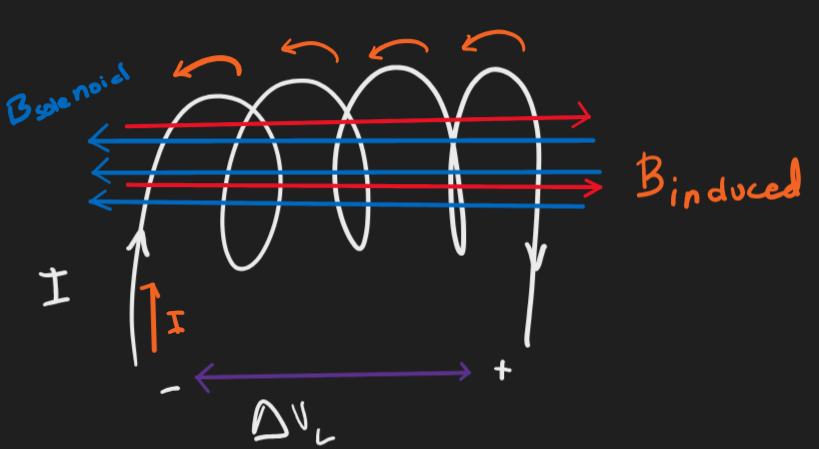 Bsolenoid
Binduced
I
I
- +
ΔVL